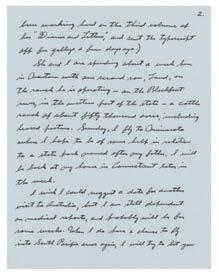 2.
been working hard on the third volume of
her "Diaries and Letters," and sent the typescript
off for galleys a few days ago)
She and I are spending about a week here
in Montana with our second son, Land, on
the ranch he is operating — on the Blackfoot
river, in the western part of the state — a cattle
ranch of about fifty thousand acres, including
leased portions. Sunday, I fly to Minnesota
where I hope to be of some help in relation
to a state park named after my father. I will
be back at my home in Connecticut later in
the week.
I wish I could suggest a date for another
visit to Australia, but I am still dependent
on medical reports, and probably will be for
some weeks. When I do have a chance to fly
into South Pacific areas again, I will try to let you